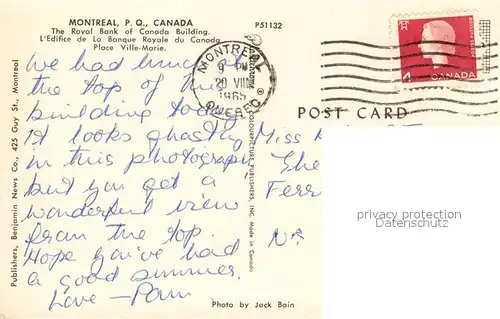 MONTREAL, P. Q., CANADA
The Royal Bank of Canada Building.
L'Edifice de La Banque Royale du Canada
Place Ville-Marie.
P51132
We had lunch at
the top of this
building today.
It looks ghastly
in this photograph
but you get a
wonderful view
from the top.
Hope you've had
a good summer.
Love - Pam
Photo by Jack Bain
Publishers, Benjamin News Co., 425 Guy St., Montreal
MONTREAL
9 PM
20 VII
1965
QUEBEC
PUBLISHERS, INC. Made in Canada
4
CANADA
POST CARD
Miss
Ferr
privacy protection
Datenschutz